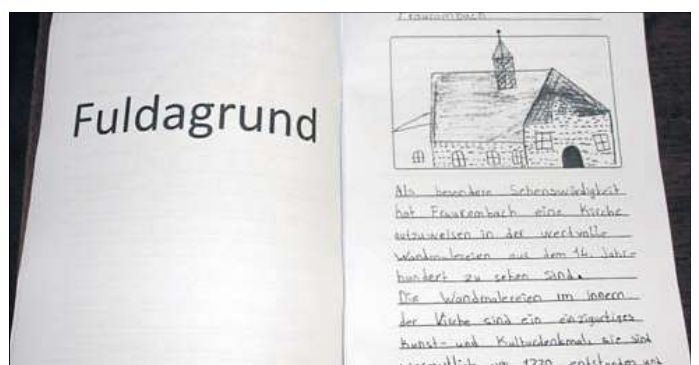 Fuldagrund
Fraurombach
Als besondere Sehenswürdigkeit
hat Fraurombach eine Kirche
aufzuweisen in der wertvolle
Wandmalereien aus dem 14. Jahr-
hundert zu sehen sind.
Die Wandmalereien im Innern
der Kirche sind ein einzigartiges
Kunst- und Kulturdenkmal, sie sind
vermutlich um 1330 entstanden und